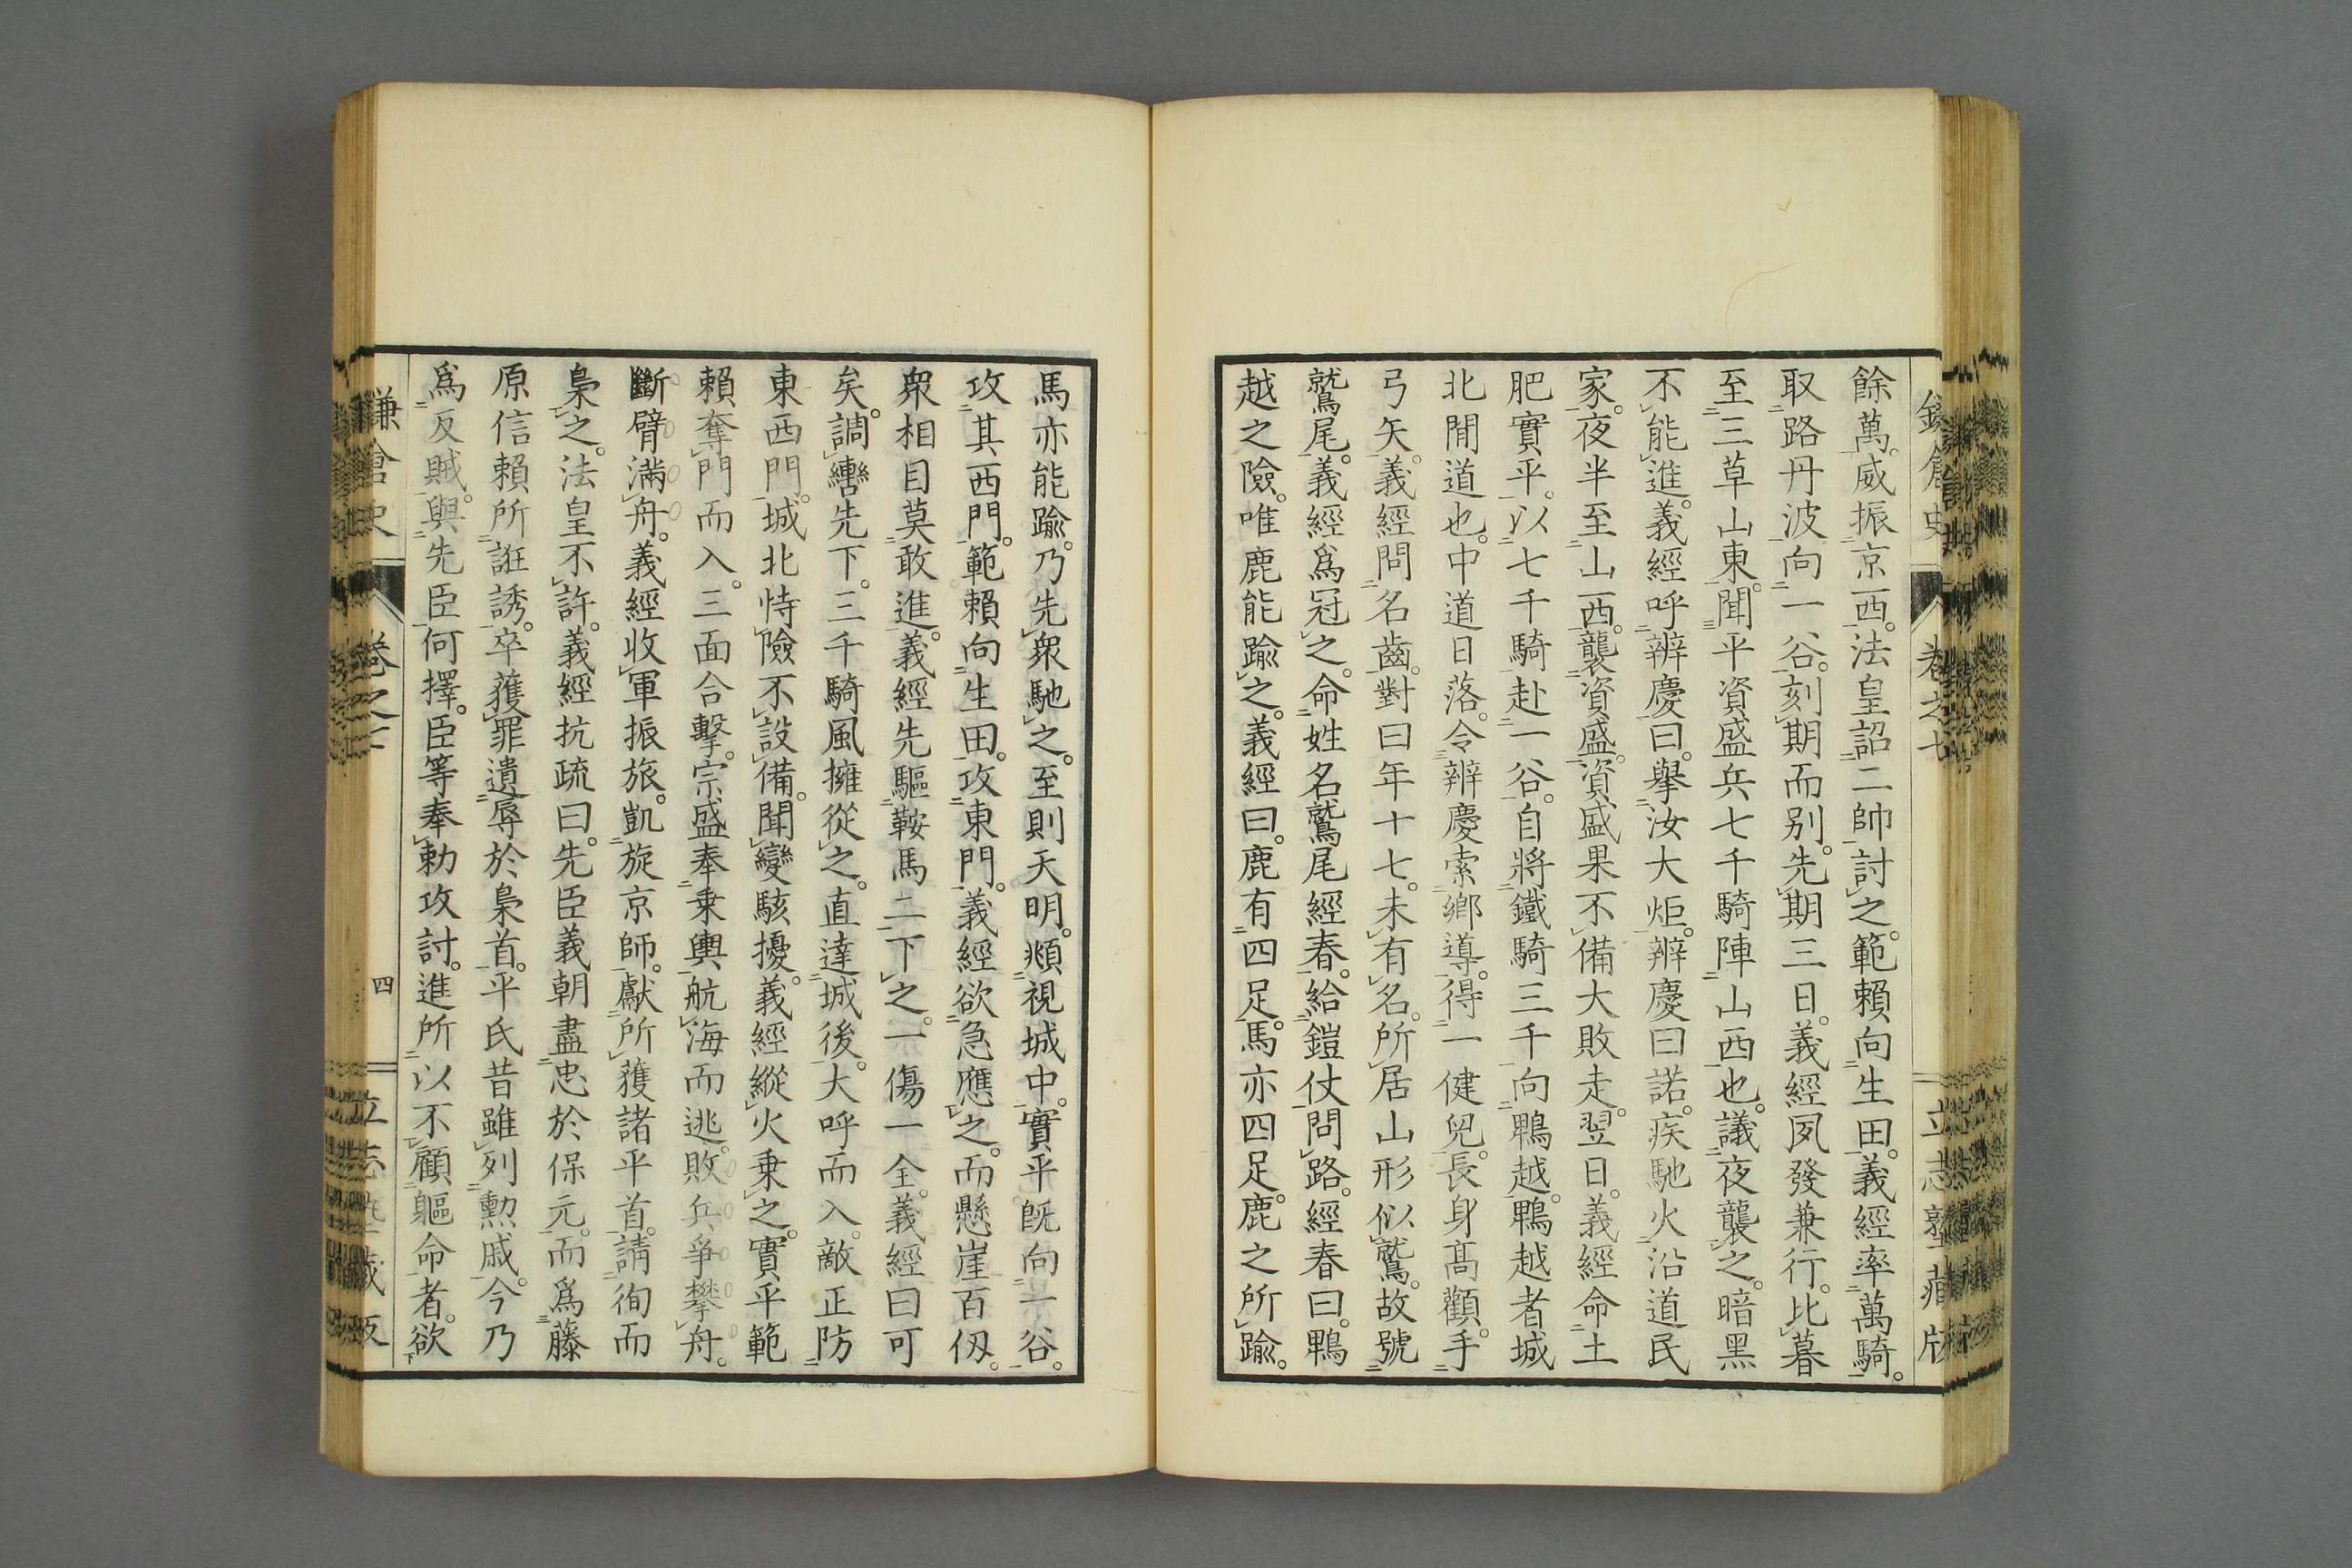 餘萬。威振京西。法皇詔二帥討之。範賴向生田。義經率萬騎。
取路丹波向一谷。刻期而別。先期三日。義經夙發兼行。比暮
至三草山東。聞平資盛兵七千騎陣山西也。議夜襲之。暗黑
不能進。義經呼辨慶曰。擧汝大炬。辨慶曰諾。疾馳火沿道民
家。夜半至山西。襲資盛。資盛果不備大敗走。翌日。義經命土
肥實平。以七千騎赴一谷。自將鐵騎三千向鵯越。鵯越者城
北閒道也。中道日落。令辨慶索鄉導。得一健兒。長身高顴。手
弓矢。義經問名齒。對曰年十七。未有名。所居山形似鷲。故號
鷲尾。義經爲冠之。命姓名鷲尾經春。給鎧仗問路。經春曰。鵯
越之險。唯鹿能踰之。義經曰。鹿有四足。馬亦四足。鹿之所踰。
馬亦能踰。乃先衆馳之。至則天明。頫視城中。實平既向一谷。
攻其西門。範賴向生田。攻東門。義經欲急應之。而懸崖百仭。
衆相目莫敢進。義經先驅鞍馬二下之。一傷一全。義經曰可
矣。調轡先下。三千騎風擁從之。直達城後。大呼而入。敵正防
東西門。城北恃險不設備。聞變駭擾。義經縱火乘之。實平範
賴奪門而入。三面合擊。宗盛奉乘輿航海而逃。敗兵爭攀舟。
斷臂滿舟。義經收軍振旅。凱旋京師。獻所獲諸平首。請徇而
梟之。法皇不許。義經抗疏曰。先臣義朝盡忠於保元。而爲藤
原信賴所誑誘。卒獲罪遺辱於梟首。平氏昔雖列勲戚。今乃
爲反賊。與先臣何擇。臣等奉勅攻討。進所以不顧軀命者。欲
鎌倉史 卷之七 四 立志塾藏版